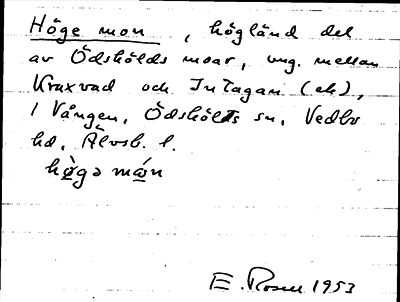 Höge mon, högländ del
av Ödskölds moar, ung. mellan
Kraxvad och Intagan (ek),
i Vången, Ödskölds sn, Vedbo
hd, Älvsb. l.
hö̀gə mó̀n
E. Rosen 1953